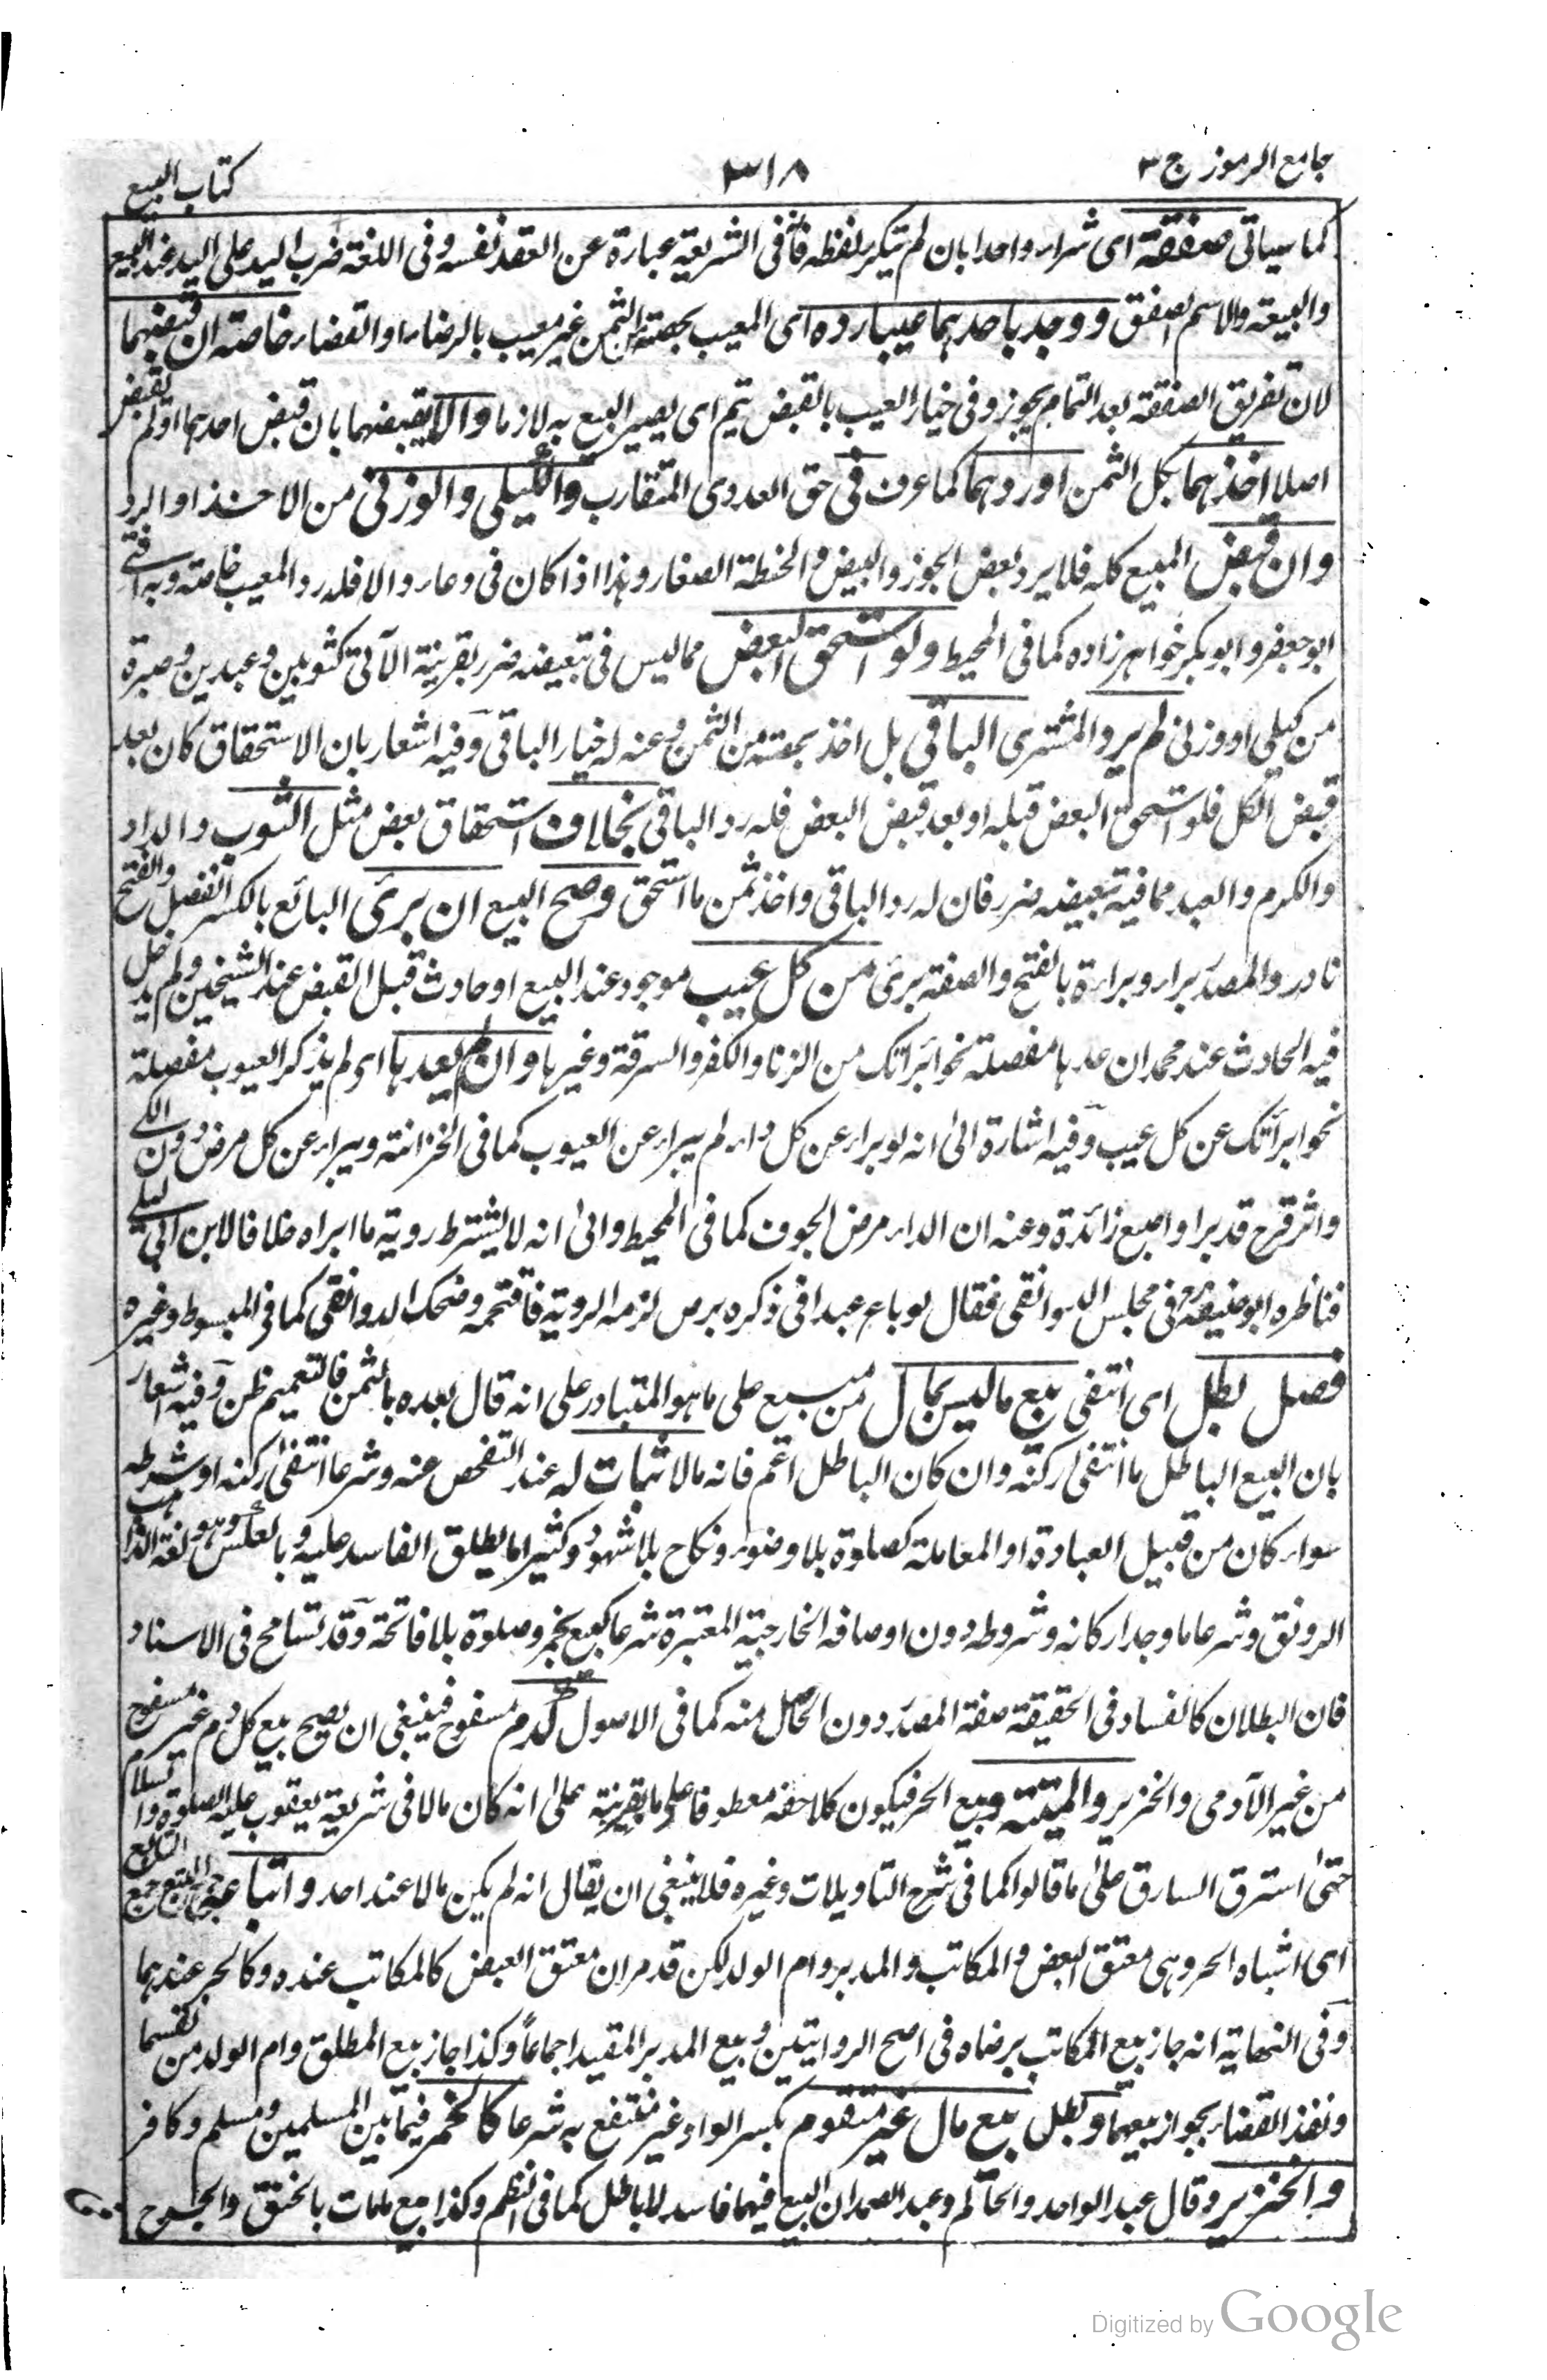 جامع الرموز ج ٣
٣١٨
كتاب البيع
كما سياتى صفقة اى شراء واحدا بان لم يتكرر لفظه فانها فى الشريعة عبارة عن العقد نفسه وفى اللغة ضرب اليد على اليد عند البيع
والبيعة والاسم الصفق ووجد باحدهما عيبا رده اى المعيب بحصته من الثمن غير معيب بالرضاء او القضاء خاصة ان قبضهما
لان تفريق الصفقة بعد التمام يجوز وفى خيار العيب بالقبض يتم اى يصير البيع به لازما والا يقبضهما بان قبض احدهما او لم يقبض
اصلا اخذهما بكل الثمن او ردهما كما عرف فى حق العددى المتقارب والكيلى والوزنى من الاخذ او الرد
وان قبض المبيع كله فلا يرد بعض الجوز والبيض والحنطة الصغار وهذا اذا كان فى وعاء والا فله رد المعيب خاصة وبه افتى
ابو جعفر وابو بكر خواهر زاده كما فى المحيط ولو استحق البعض مما ليس فى تبعيضه ضرر بقرينة الآتى كثوبين وعبدين وصبرة
من كيلى او وزنى لم يرد المشترى الباقى بل اخذ بحصته من الثمن وعنه له خيار الباقى وفيه اشعار بان الاستحقاق كان بعد
قبض الكل فلو استحق البعض قبله او بعد قبض البعض فله رد الباقى بخلاف استحقاق بعض مثل الثوب والدار
والكرم والعبد مما فيه تبعيضه ضرر فان له رد الباقى واخذ ثمن ما استحق وصح البيع ان برئ البائع بالكسر الفصل والفتح
نادر والمصدر براء وبراءة بالفتح والصفة برئ من كل عيب موجود عند البيع او حادث قبل القبض عند الشيخين ولم يدخل
فيه الحادث عند محمد ان عدها مفصلة نحو ابرأتك من الزنا والكفر والسرقة وغيرها وان لم يعدها اى لم يذكر العيوب مفصلة
نحو ابرأتك عن كل عيب وفيه اشارة الى انه لو براء عن كل داء لم يبراء عن العيوب كما فى الخزانة ويبراء عن كل مرض دون الكى
واثر قرح قد برا واصبع زائدة وعنه ان الداء مرض الجوف كما فى المحيط والى انه لا يشترط روية ما ابراه خلافا لابن ابى ليلى
فناظره ابو حنيفة رح فى مجلس الدوانقى فقال لو باع عبدا فى ذكره برص لزمه الروية فافتحمه وضحك الدوانقى كما فى المبسوط وغيره
فصل بطل اى انتفى بيع ما ليس بمال من مبيع على ما هو المتبادر على انه قال بعده بالثمن فالتعميم ظن وفيه اشعار
بان البيع الباطل ما انتفى ركنه وان كان الباطل اعم فانه مالا ثبات له عند التفحص عنه وشرعا انتفى ركنه او شرطه
سواء كان من قبيل العبادة او المعاملة كصلوة بلا وضوء ونكاح بلا شهود وكثيرا ما يطلق الفاسد عليه وبالعكس وهو لغة الذاهب
الرونق وشرعا ما وجد اركانه وشروطه دون اوصافه الخارجية المعتبرة شرعا كبيع بخمر وصلوة بلا فاتحة وقد تسامح فى الاسناد
فان البطلان كالفساد فى الحقيقة صفة المصدر دون الحاصل منه كما فى الاصول كدم مسفوح فينبغى ان يصح بيع كل دم غير مسفوح
من غير الآدمى والخنزير والميتة وبيع الحر فيكون كلاحقه معطوفا على ما بقرينة على انه كان مالا فى شريعة يعقوب عليه الصلوة والسلام
حتى استرق السارق على ما قالوا كما فى شرح التاويلات وغيره فلا ينبغى ان يقال انه لم يكن مالا عند احد واتباعه جمع التبع جمع التابع
اى اشباه الحر وهى معتق البعض والمكاتب والمدبر وام الولد لكن قد مر ان معتق البعض كالمكاتب عنده وكالحر عندهما
وفى النهاية انه جاز بيع المكاتب برضاه فى اصح الروايتين وبيع المدبر المقيد اجماعا وكذا جاز بيع المطلق وام الولد من نفسهما
ونفذ القضاء بجواز بيعهما وبطل بيع مال غير متقوم بكسر الواو غير منتفع به شرعا كالخمر فيما بين المسلمين ومسلم وكافر
والخنزير وقال عبد الواحد والحاكم وعبد الصمد ان البيع فيهما فاسد لا باطل كما فى النظم وكذا بيع ما مات بالخنق والجرح
Digitized by Google